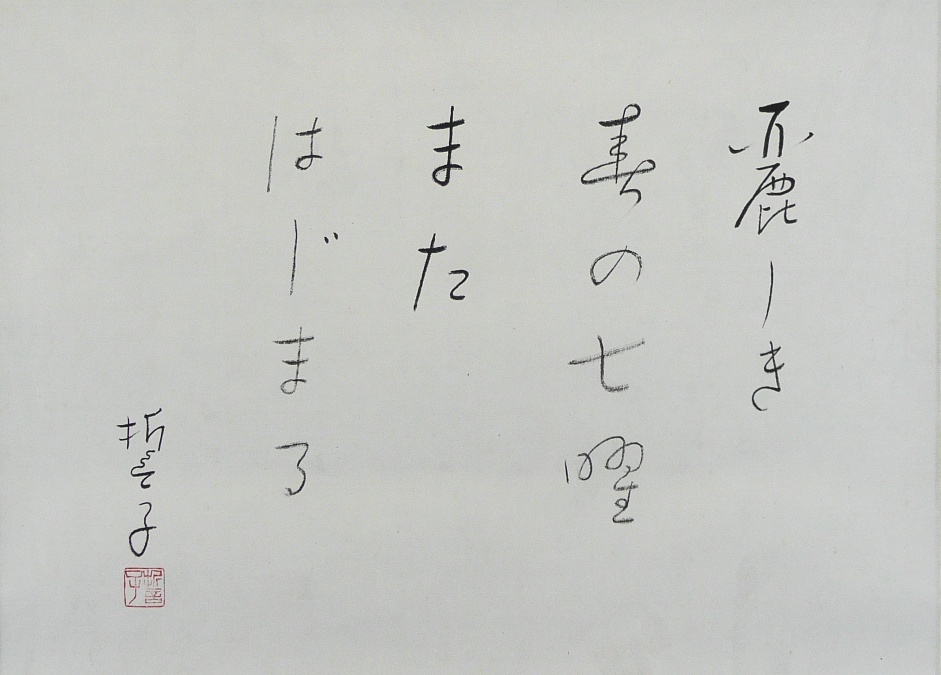 麗しき
春の七曜
また
はじまる
誓子
誓子